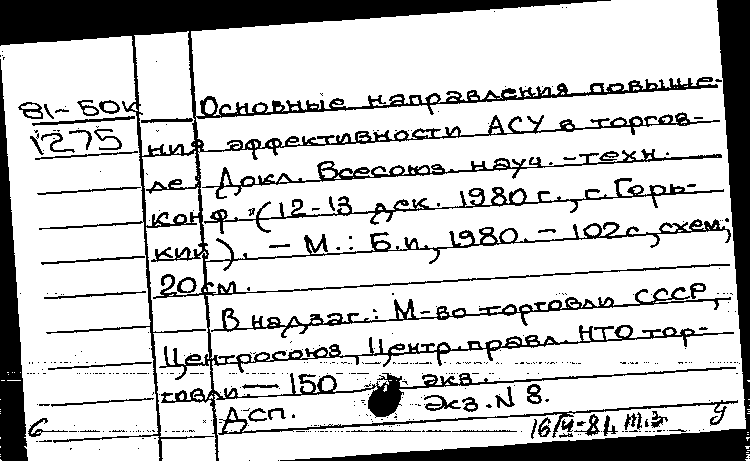 81-50к Основные направления повыше-
1275 ния эффективности АСУ в торгов-
ле. Докл. Всесоюз. науч.-техн.
конф. (12-13 дек. 1980 г., г. Горь-
кий). - М.: Б.и., 1980. - 102 с., схем.;
20 см.
В надзаг.: М-во торговли СССР,
Центросоюз, Центр. правл. НТО тор-
говли. - 150 экз.
ДСП. Экз. N 8.
б 16/IV-81. т.з. У